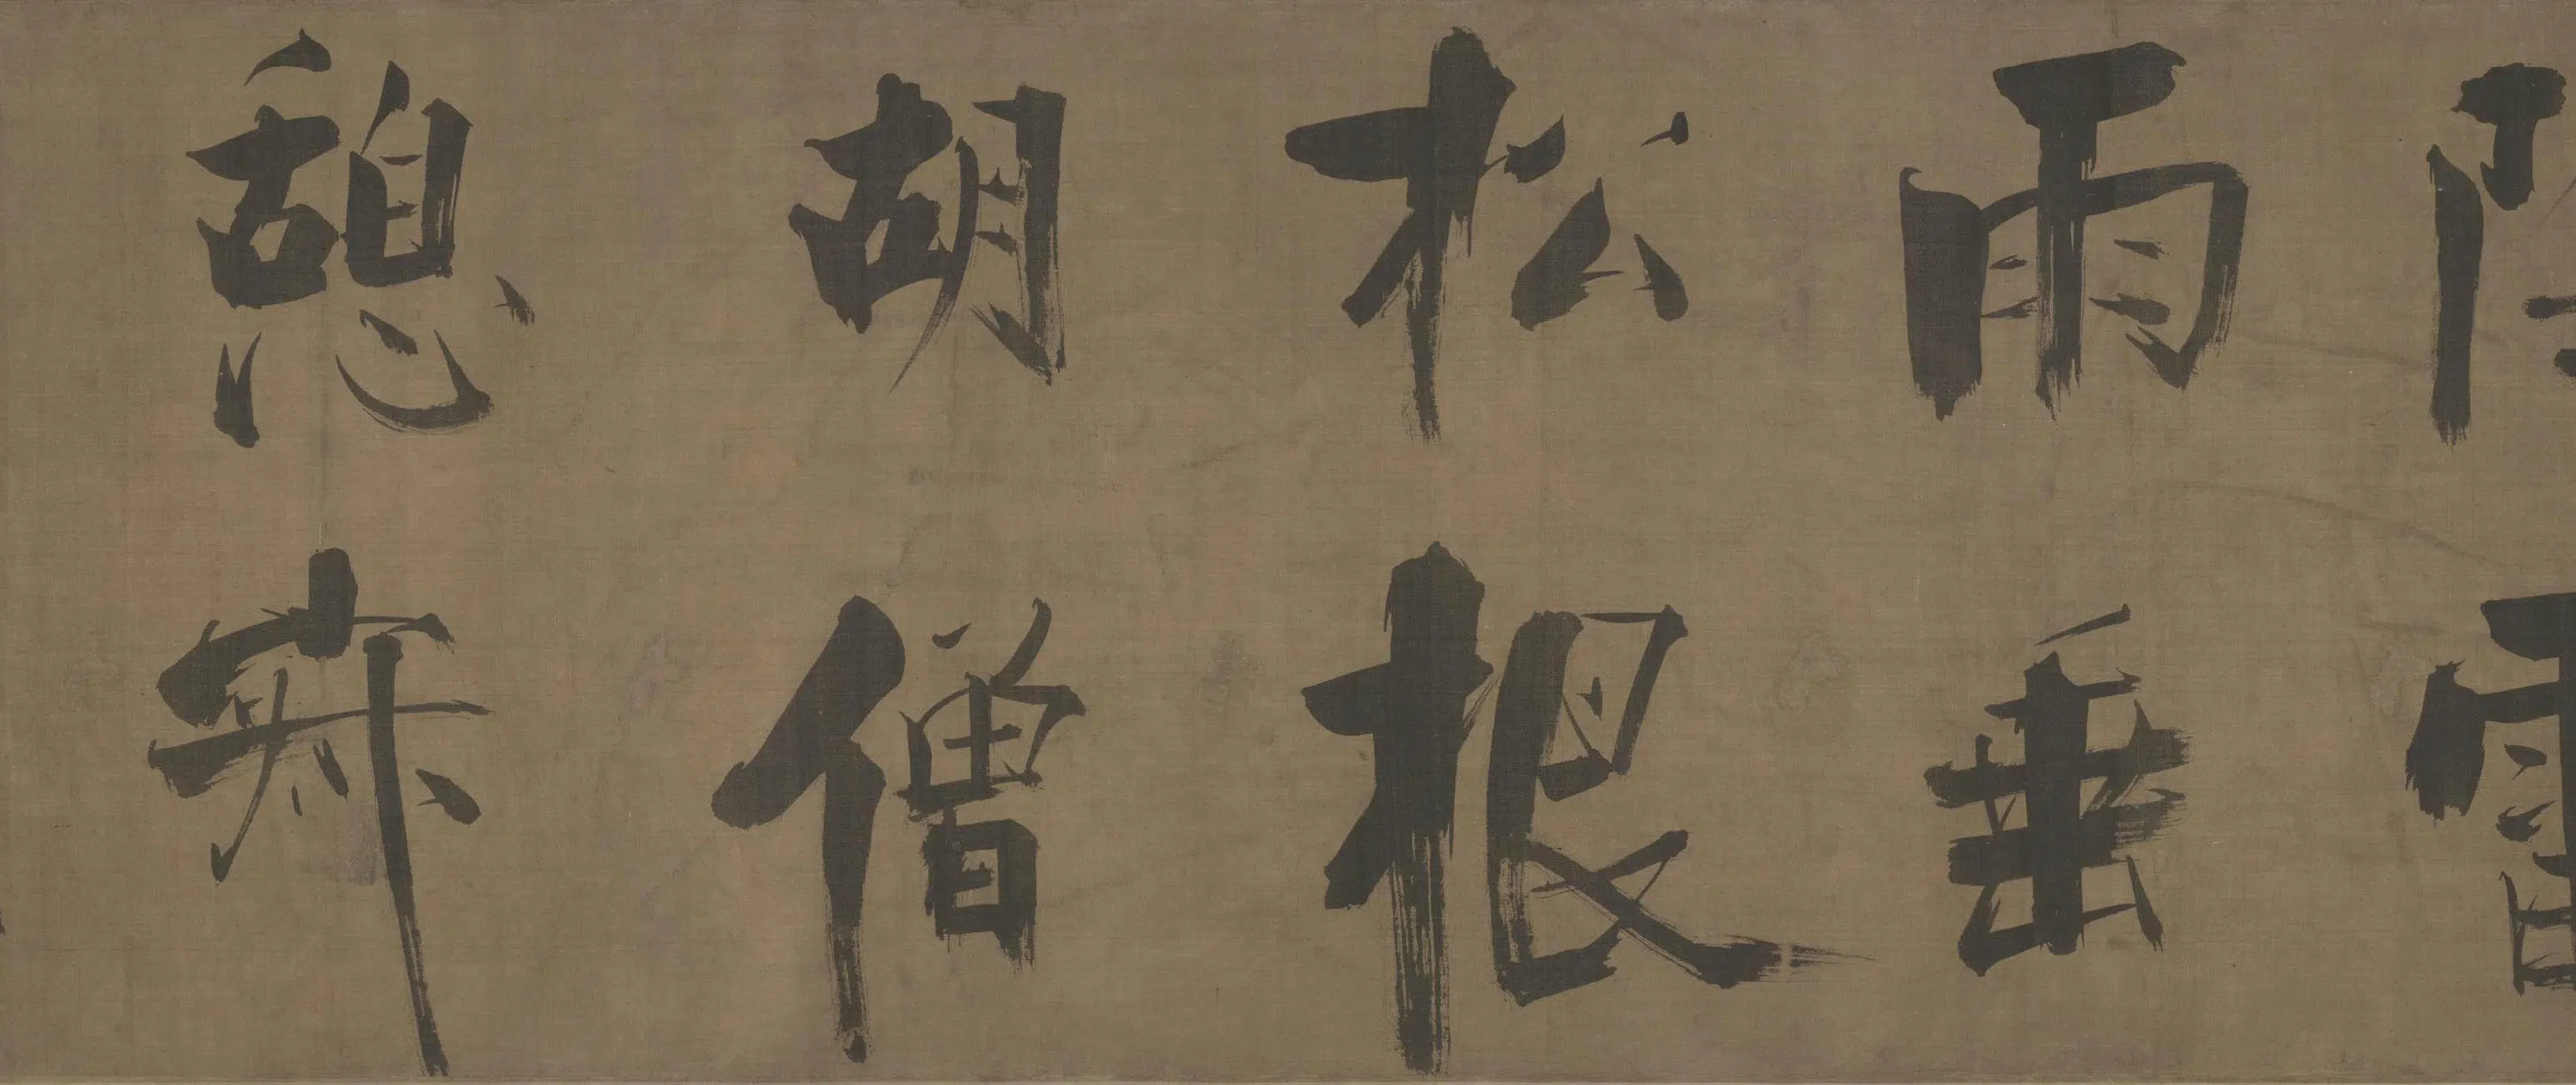 雨垂
松根
胡僧
憩寂